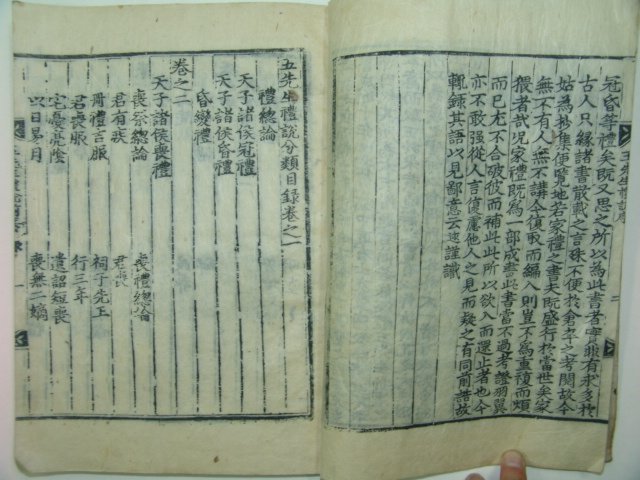 冠昏等禮矣既又思之所以為此書者實
古人只緣諸書散載之言殊不便於倉卒之考閱故今
姑為抄集便覽地若家禮之書夫旣盛行於當世矣家
無不有人無不講今復取而編入則豈不為重復而煩
猥者哉況家禮旣為一部成書此書當不過考證羽翼
而已尤不合破彼而補此此所以欲入而還止者也今
亦不敢强從人言復慮他人之見而疑之有同前語故
輒錄其語以見鄙意云爾謹識
五先生禮說分類目録卷之一
禮總論
天子諸侯冠禮
天子諸侯昏禮
昏變禮
卷之二
天子諸侯喪禮
喪祭總論 喪禮總論
君有疾 君喪
君喪服 祠于先王
宅憂亮陰 行三年
以日易月 遺詔短喪
喪無二嫡